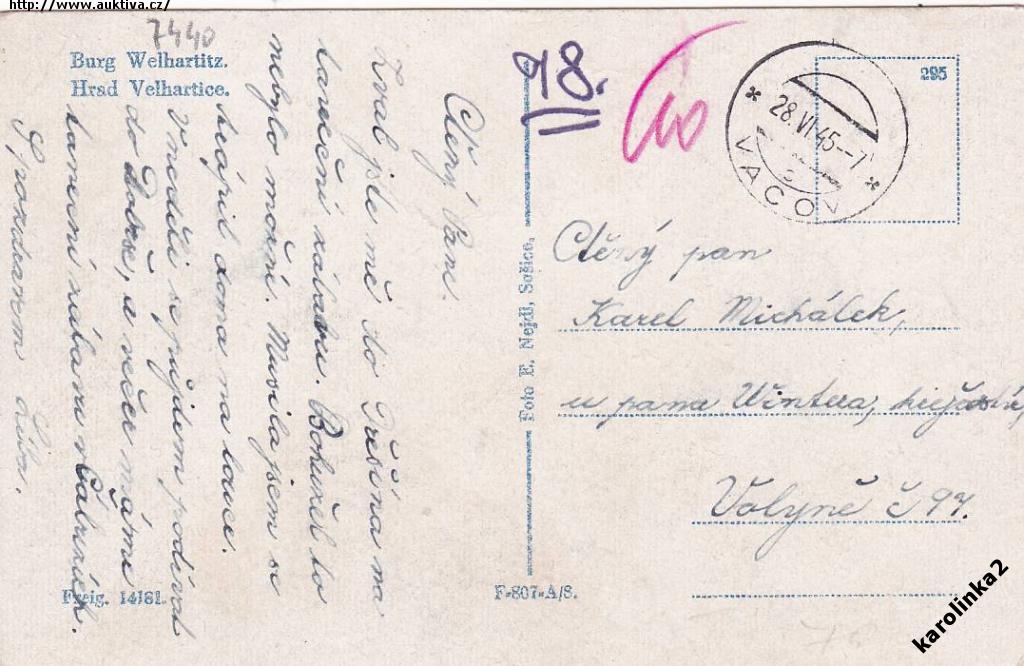 http://www.auktiva.cz/
7440
Burg Welhartitz.
Hrad Velhartice.
Ctěný Pane.
Zval jste mě do Třešína na
taneční zábavu. Bohužel to
nebylo možní. Musila jsem se
doma na louce.
V neděli se půjdem podívat
do Dobrše, a večer máme
taneční zábavu v
S pozdravem
Freig. 14181.
Foto E. Nejdl, Sušice.
F-807-A/8.
98.
295
* 28.VI.45--7 *
VACOV
Ctěný pan
Karel Michálek,
u pana Wintera,
Volyně č 97.
karolinka2